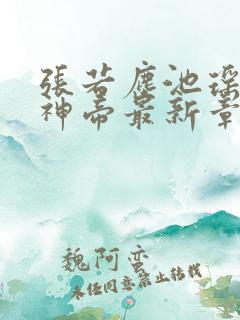 張若塵池瑤
神帝最新章
魏阿蛮
未经同意禁止转载